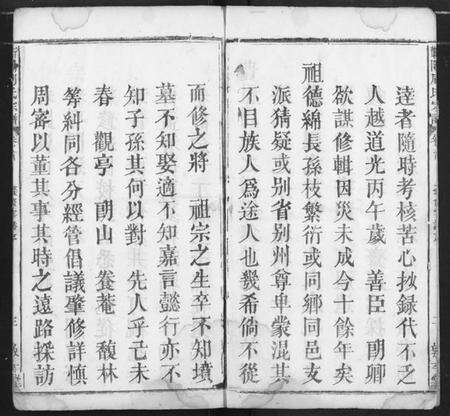 達者隨時考核苦心抄錄代不乏
人越道光丙午歲　善臣　朗卿
欲謀修輯因災未成今十餘年矣
祖德綿長孫枝繁衍或同鄉同邑支
派猜疑或别省别州尊卑蒙混其
不目族人爲途人也幾希倘不從
而修之將　祖宗之生卒不知墳
墓不知娶適不知嘉言懿行亦不
知子孫其何以對　先人乎己未
春　觀亭　朗山　養菴　馥林
等糾同各分經管倡議肇修詳慎
周寄以董其事其時之遠路採訪